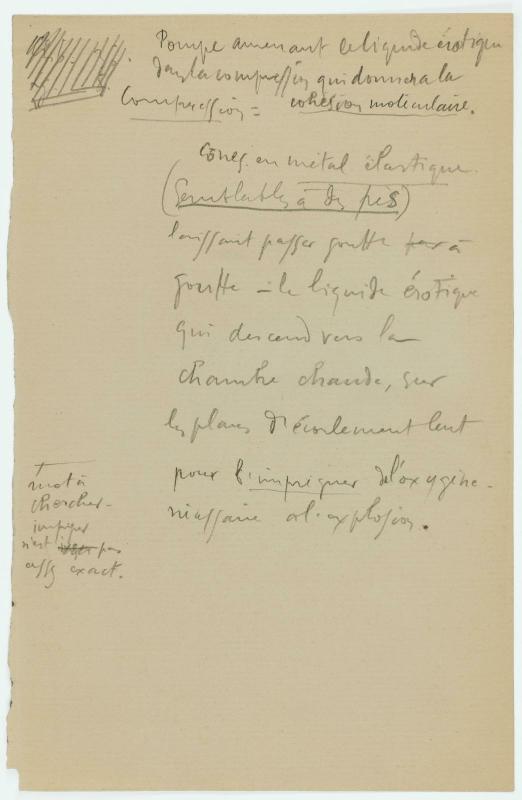 Pompe amenant ce liquide érotique
dans la compression qui donnera la
Compression = cohésion moléculaire.
Cônes en métal élastique
(Semblables à des pis)
laissant passer goutte par à
goutte – le liquide érotique
qui descend vers la
chambre chaude, sur
les plans d'écoulement lent
pour l'imprégner de l'oxygène
nécessaire à l'explosion.
mot à
chercher –
imprégner
n'est pas
assez exact.